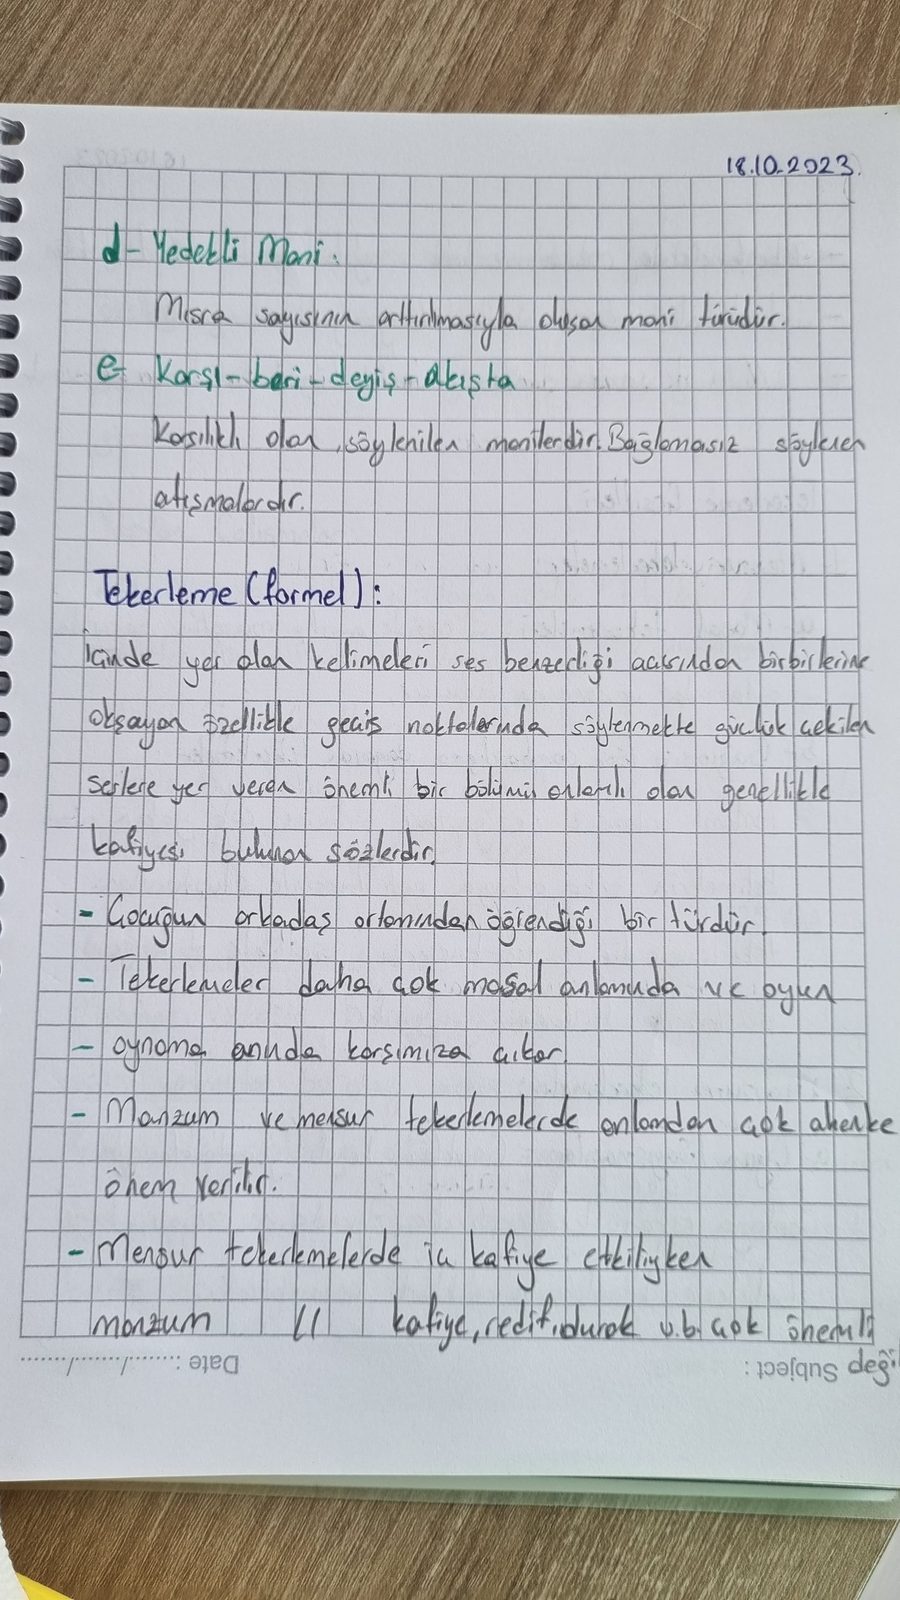 18.10.2023
d- Yedekli Mani:
Mısra sayısının arttırılmasıyla oluşan mani türüdür.
e- Karşı-beri-deyiş-akışta
Karşılıklı olan, söylenilen manilerdir. Bağlamasız söylenen
atışmalardır.
Tekerleme (formel):
İçinde yer alan kelimeleri ses benzerliği açısından birbirlerine
okşayan özellikle geçiş noktalarında söylenmekte güçlük çekilen
seslere yer veren önemli bir bölümü anlamlı olan genellikle
kafiyesi bulunan sözlerdir.
- Çocuğun arkadaş ortamından öğrendiği bir türdür.
- Tekerlemeler daha çok masal anlamında ve oyun
- oynama anında karşımıza çıkar.
- Manzum ve mensur tekerlemelerde anlamdan çok ahenke
önem verilir.
- Mensur tekerlemelerde iç kafiye etkiliyken
manzum " kafiye, redif, durak v.b çok önemli
değil
Subject :
Date : ....../....../......